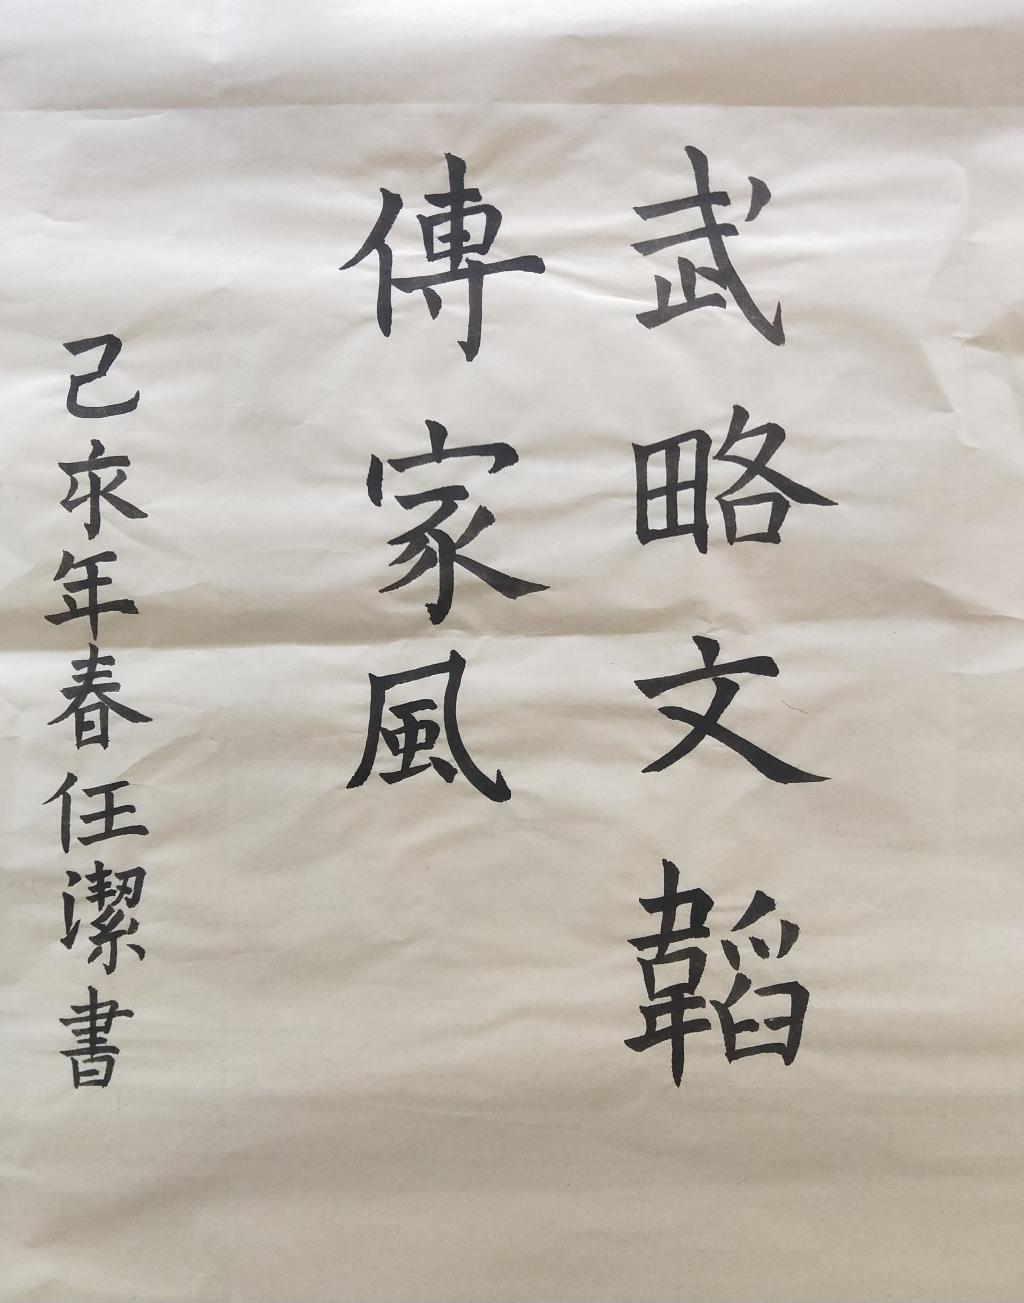 武略文韜
傳家風
己亥年春任潔書